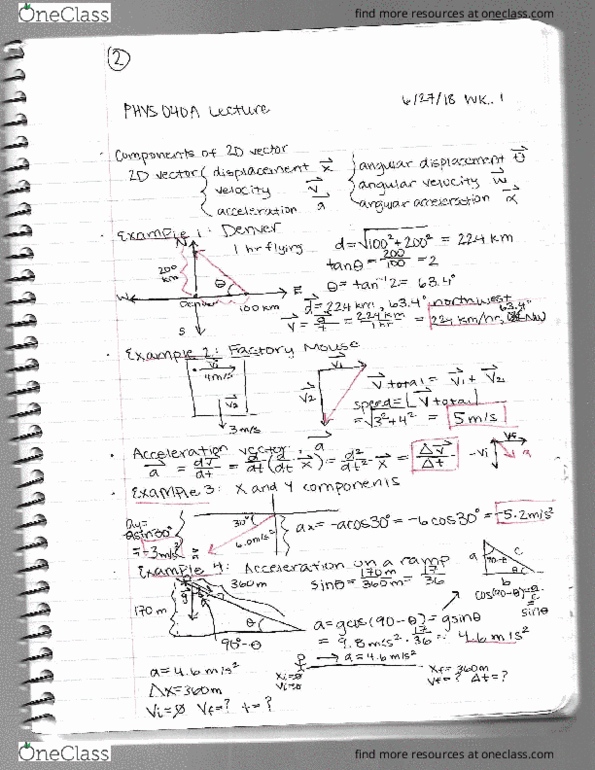 OneClass
find more resources at oneclass.com
2
PHYS 040A Lecture
6/27/18 WK. 1
Components of 2D vector
2D vector { displacement x⃗ { angular displacement θ⃗
velocity v⃗ angular velocity w⃗
acceleration a⃗ angular acceleration α⃗
Example 1: Denver
N
1 hr flying
d = √100² + 200² = 224 km
200 km
tanθ = 200/100 = 2
θ
θ = tan⁻¹ 2 = 63.4°
W
Denver
100 km
E
S
d⃗ = 224 km, 63.4° northwest
v⃗ = d/t = 224 km/1 hr = 224 km/hr, 63.4° NW
Example 2: Factory Mouse
v⃗₁
4 m/s
v⃗₂
3 m/s
v⃗₁
v⃗₂
v⃗ total = v⃗₁ + v⃗₂
speed = |v⃗ total|
= √3² + 4² = 5 m/s
Acceleration vector: a⃗
a⃗ = dv⃗/dt = d/dt (d/dt x⃗) = d²/dt² x⃗ = Δv⃗/Δt
-Vi
Vf
a
Example 3: X and Y components
ay =
asin30°
= -3 m/s²
30°
6.0 m/s²
ax = -acos30° = -6cos30° = -5.2 m/s²
Example 4: Acceleration on a ramp
360 m
170 m
θ
90°-θ
sinθ = 170m/360m = 17/36
a
c
b
90-θ
θ
cos(90-θ) = a/c
= sinθ
a = gcos(90-θ) = gsinθ
= 9.8 m/s² · 17/36 = 4.6 m/s²
a = 4.6 m/s²
Δx = 360 m
Vi = 0 Vf = ? t = ?
Xi = 0
Vi = 0
→ a = 4.6 m/s²
Xf = 360 m
Vf = ? Δt = ?
OneClass
find more resources at oneclass.com